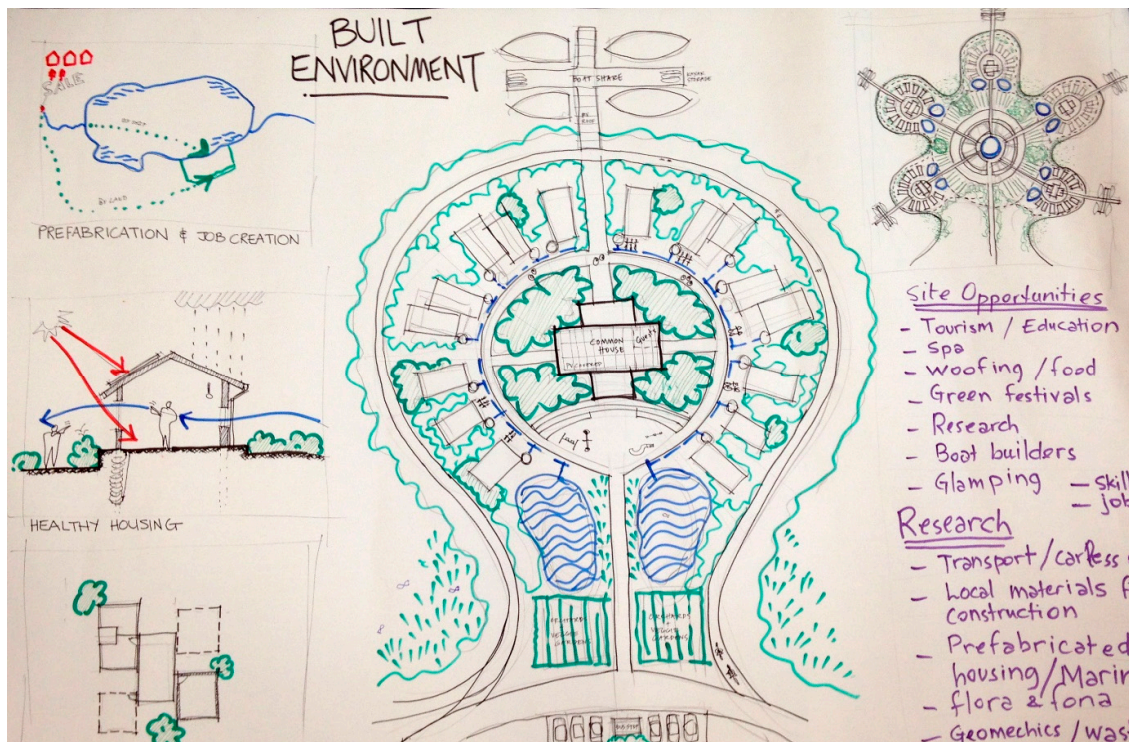 BUILT
ENVIRONMENT
SALE
BY LAND
PREFABRICATION & JOB CREATION
HEALTHY HOUSING
BOAT SHARE
KAYAK
STORAGE
COMMON
HOUSE
ORCHARDS
VEGGIE
GARDENS
ORCHARDS
+
VEGGIE
GARDENS
BUS STOP
Site Opportunities
- Tourism / Education
- Spa
- woofing / food
- Green festivals
- Research
- Boat builders
- Glamping - skill
- job
Research
- Transport / carless
- Local materials f
construction
- Prefabricated
housing / Marin
- flora & fona
- Geomechics / was